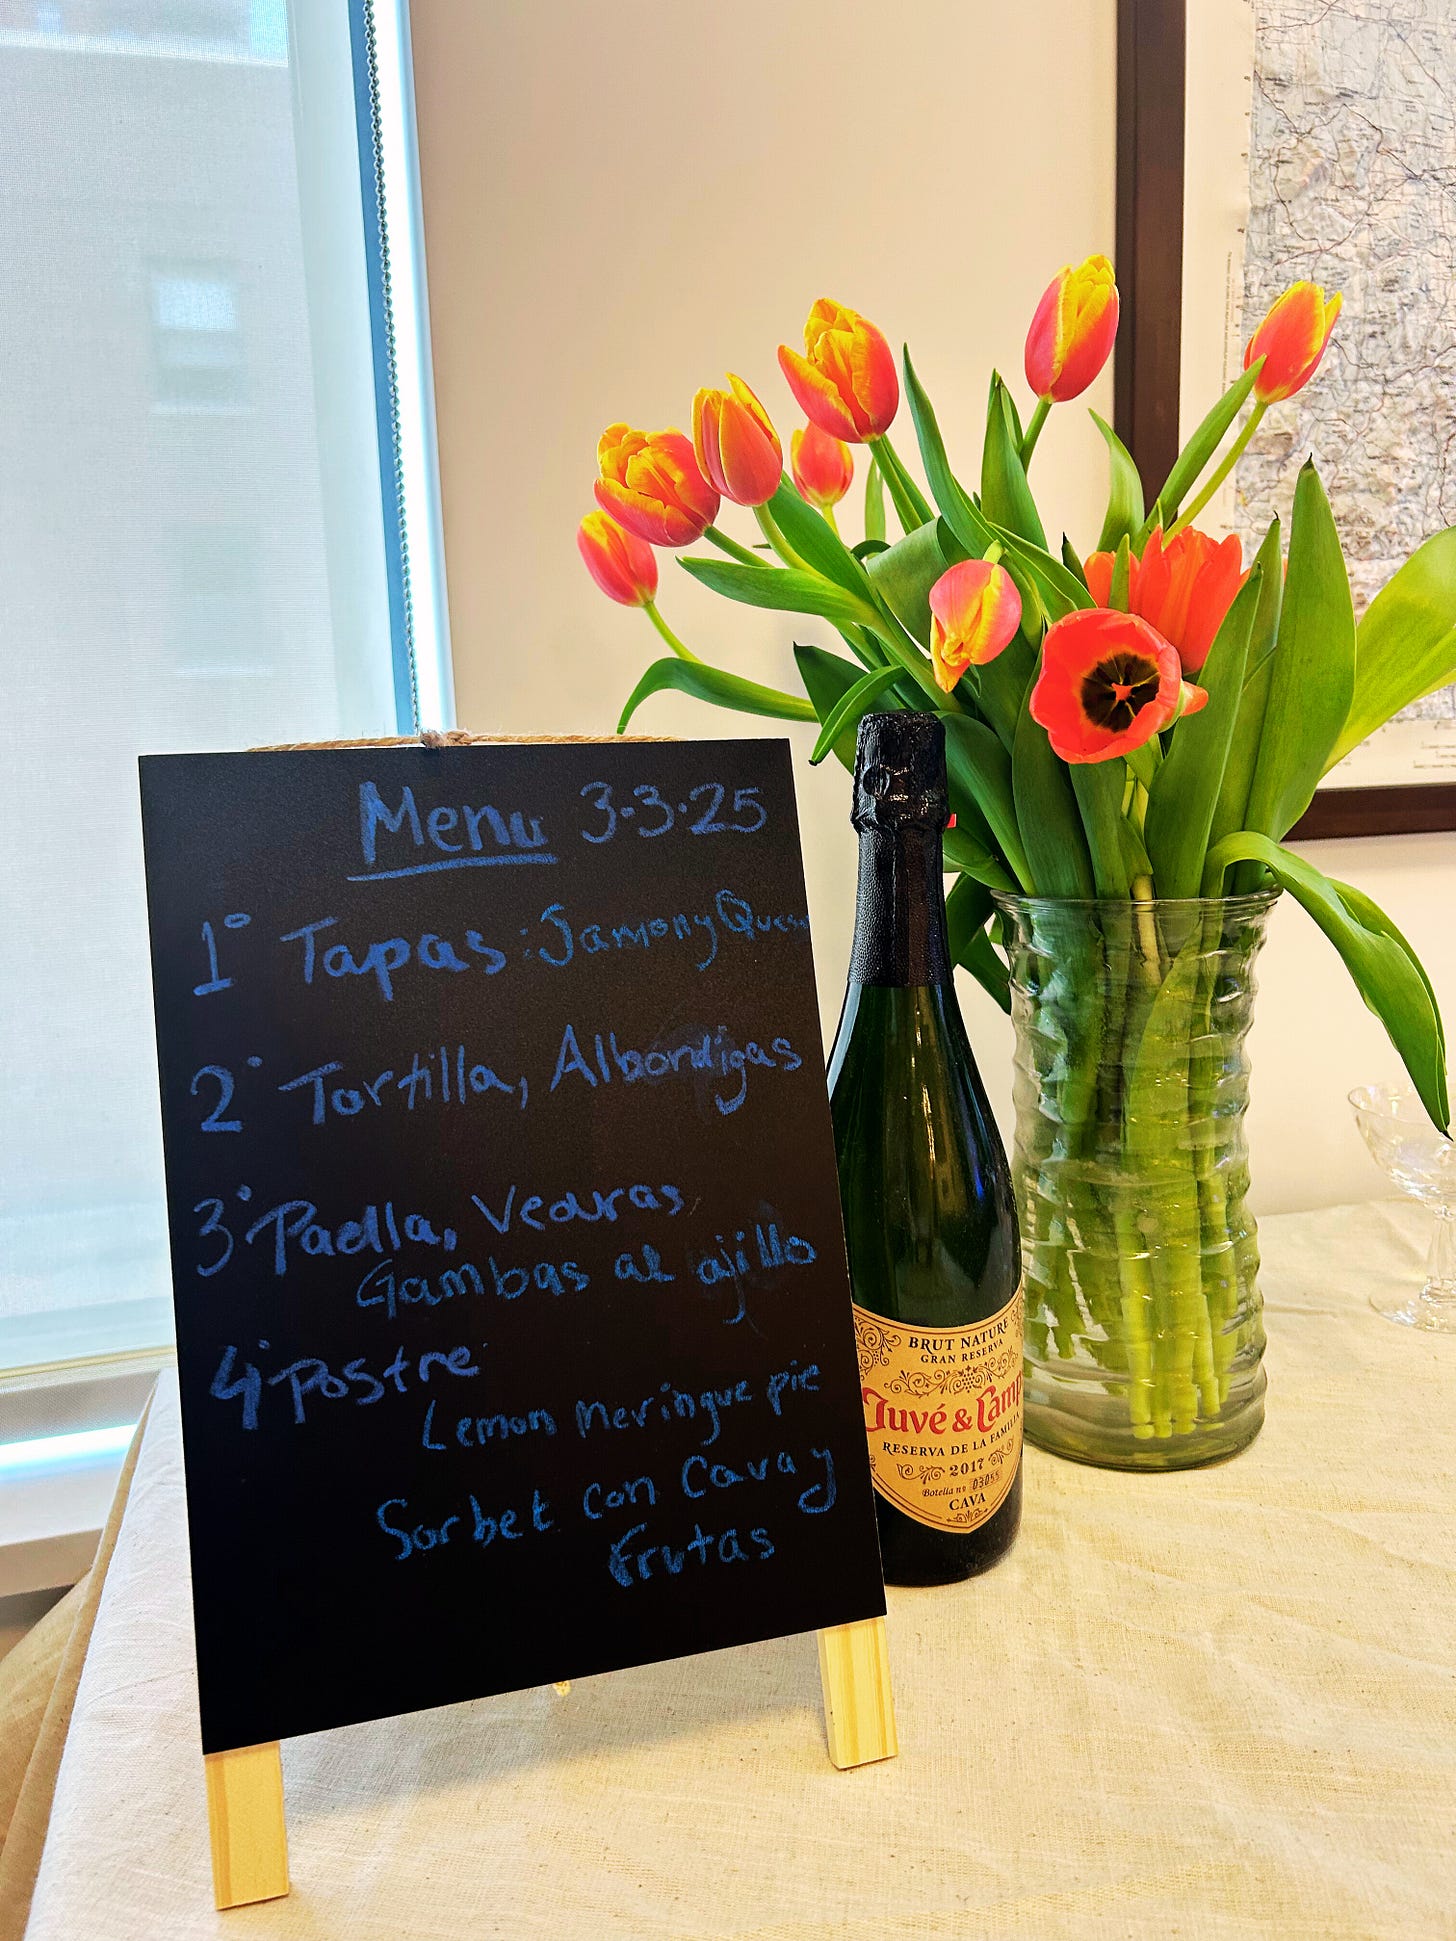 Menu 3.3.25
1° Tapas: Jamon y Queso
2° Tortilla, Albondigas
3° Paella, Veduras
Gambas al ajillo
4° Postre
Lemon Meringue pie
Sorbet con Cava y
Frutas
BRUT NATURE
GRAN RESERVA
Juvé & Camp
RESERVA DE LA FAMILIA
2017
Botella nº 03055
CAVA